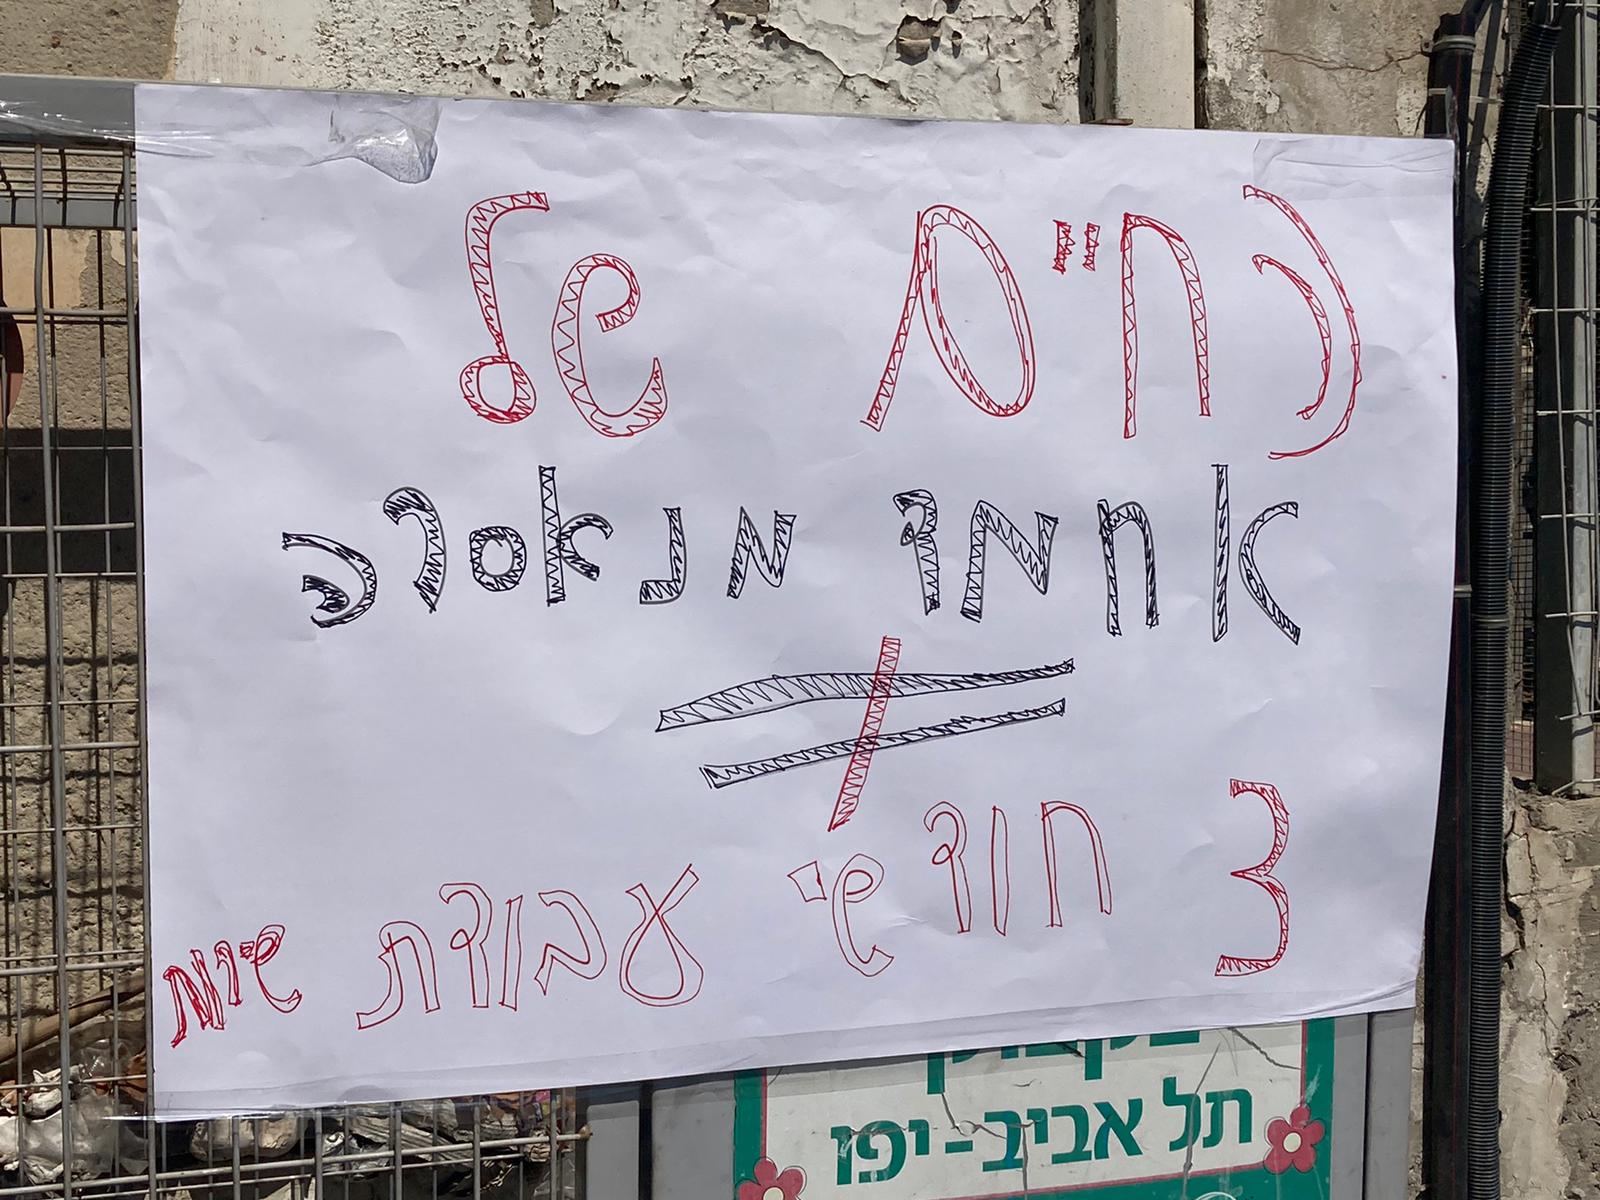 החיים של
אחמד מנאסרה
≠
3 חודשי עבודת שירות
תל אביב-יפו